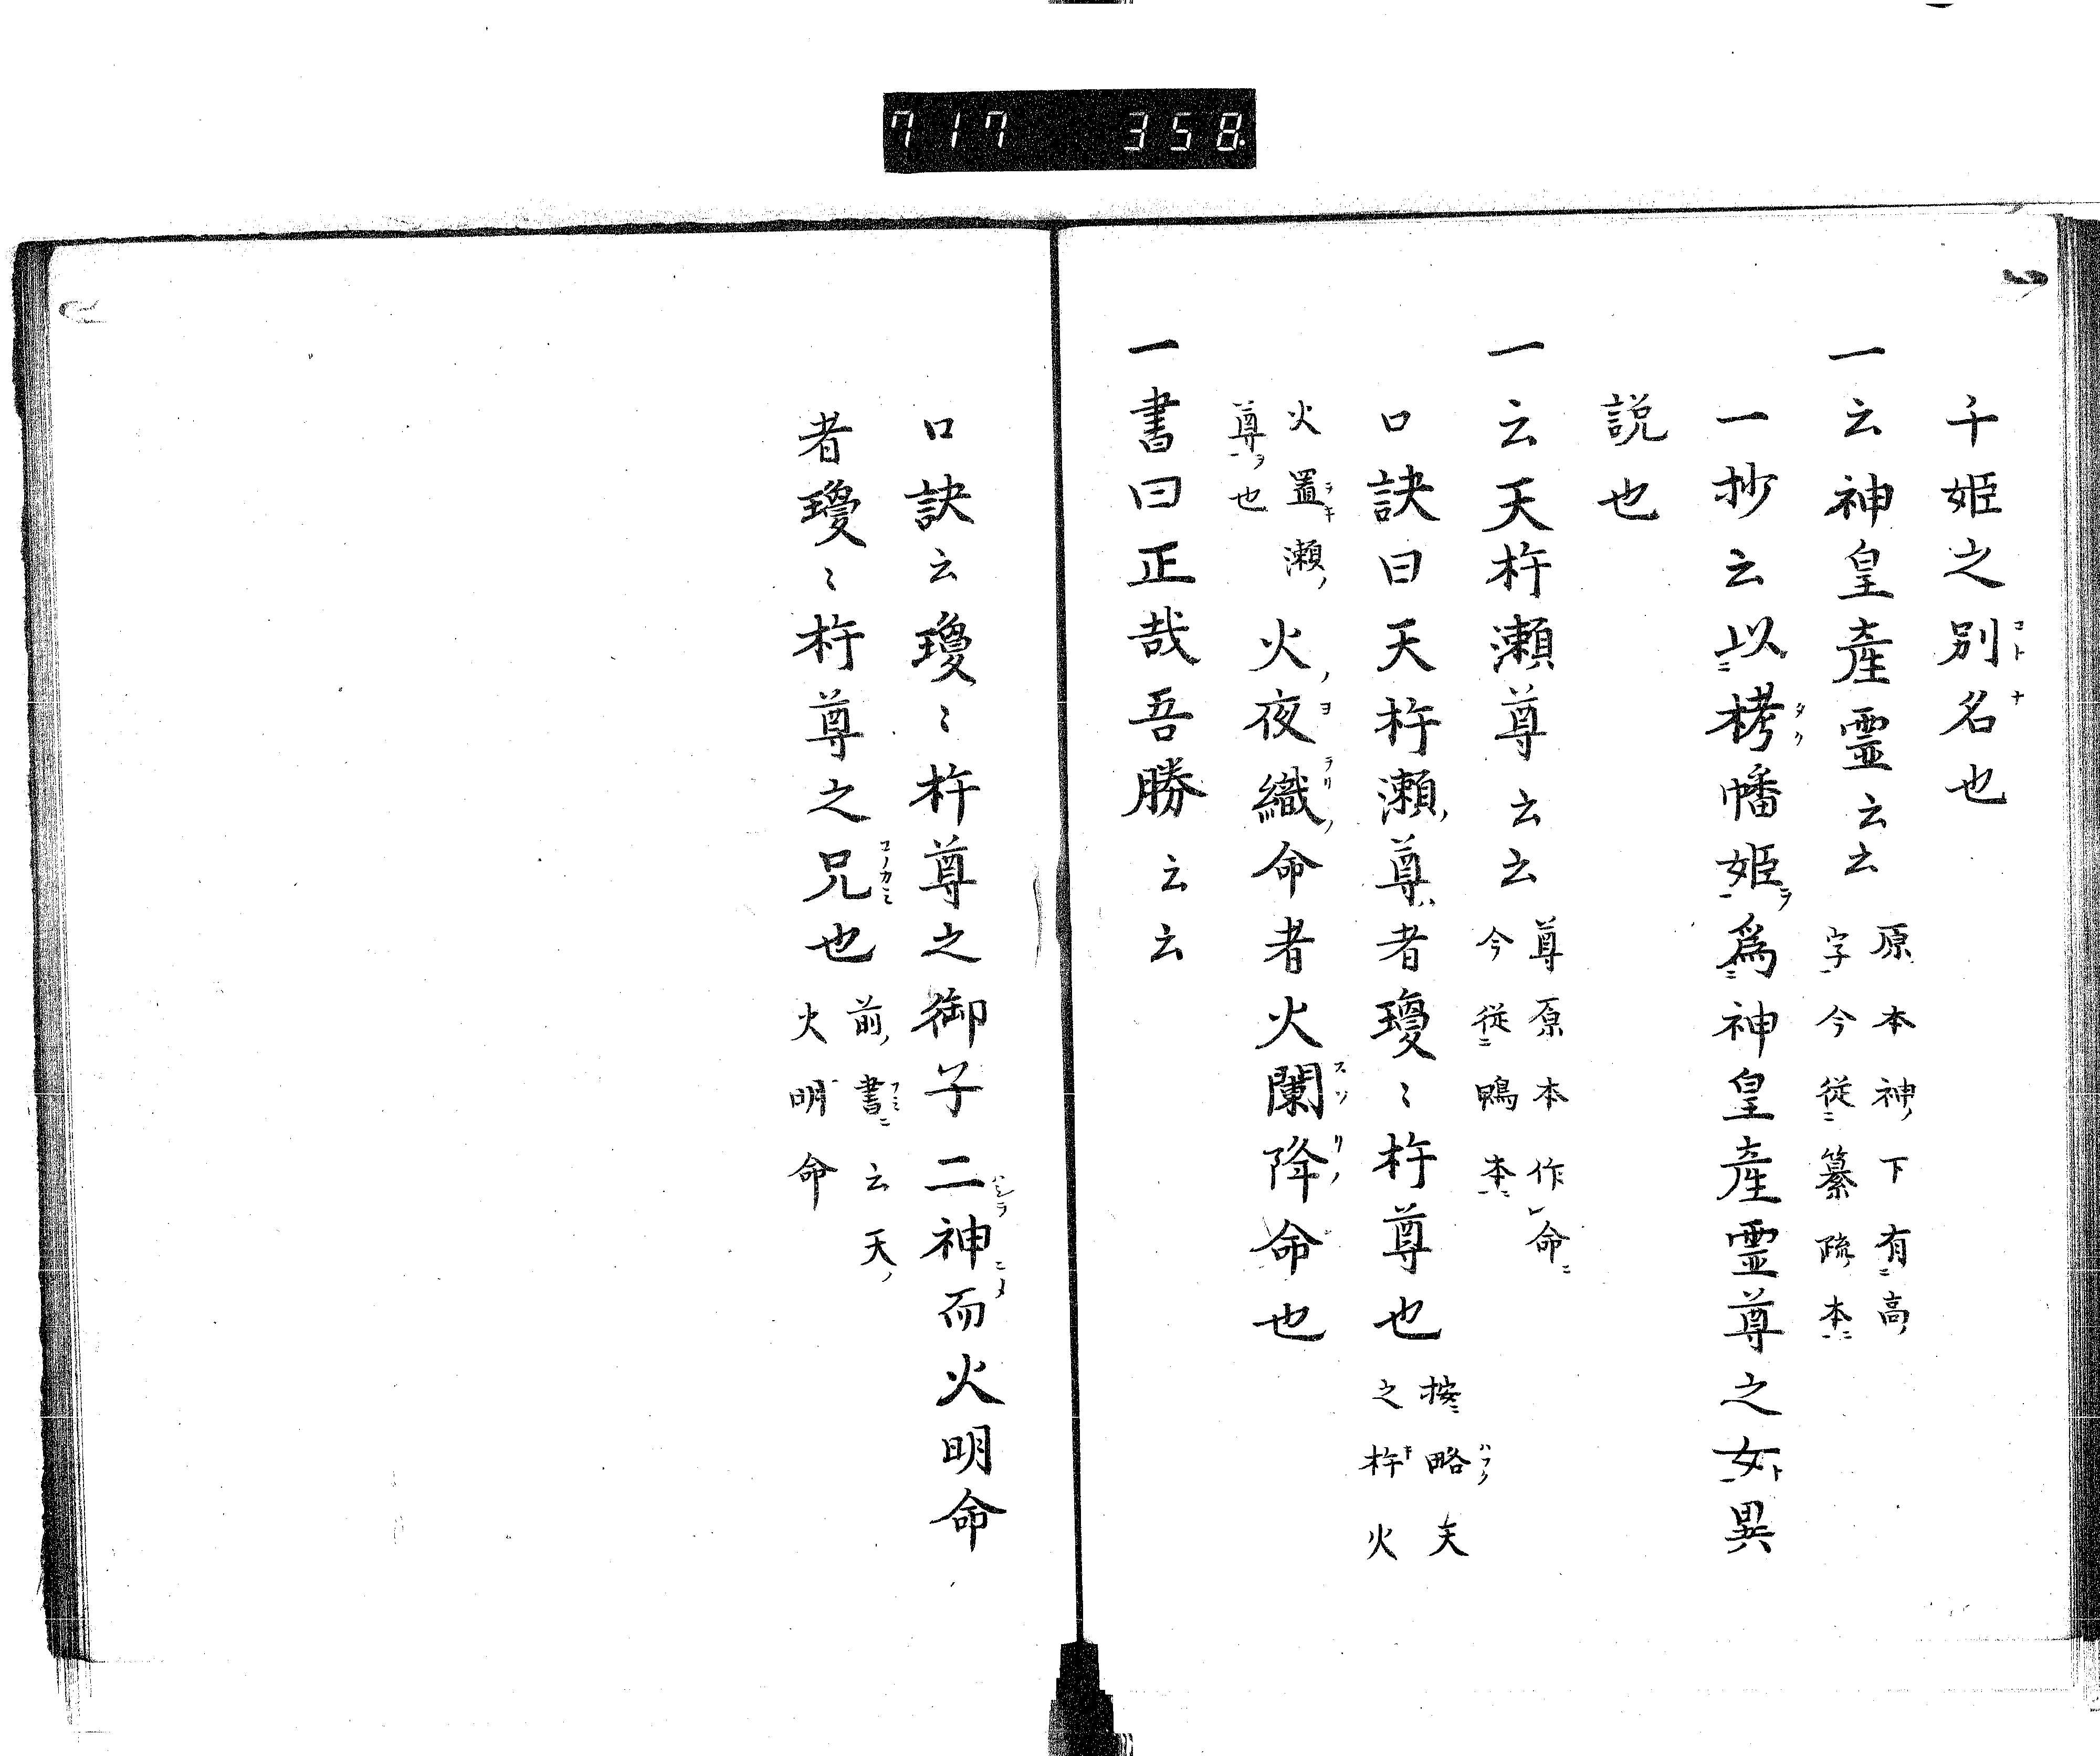 717 358
千姫之別名也
一云神皇産霊云云 原本神下有高
字今従纂疏本
一抄云以栲幡姫為神皇産霊尊之女異
説也
一云天杵瀬尊云云 尊原本作命
今従鴨本
口訣曰天杵瀬尊者瓊〻杵尊也 按略天
之杵火
火置瀬尊也 火夜織命者火闌降命也
一書曰正哉吾勝云云
口訣云瓊〻杵尊之御子二神而火明命
者瓊〻杵尊之兄也 前書云天
火明命